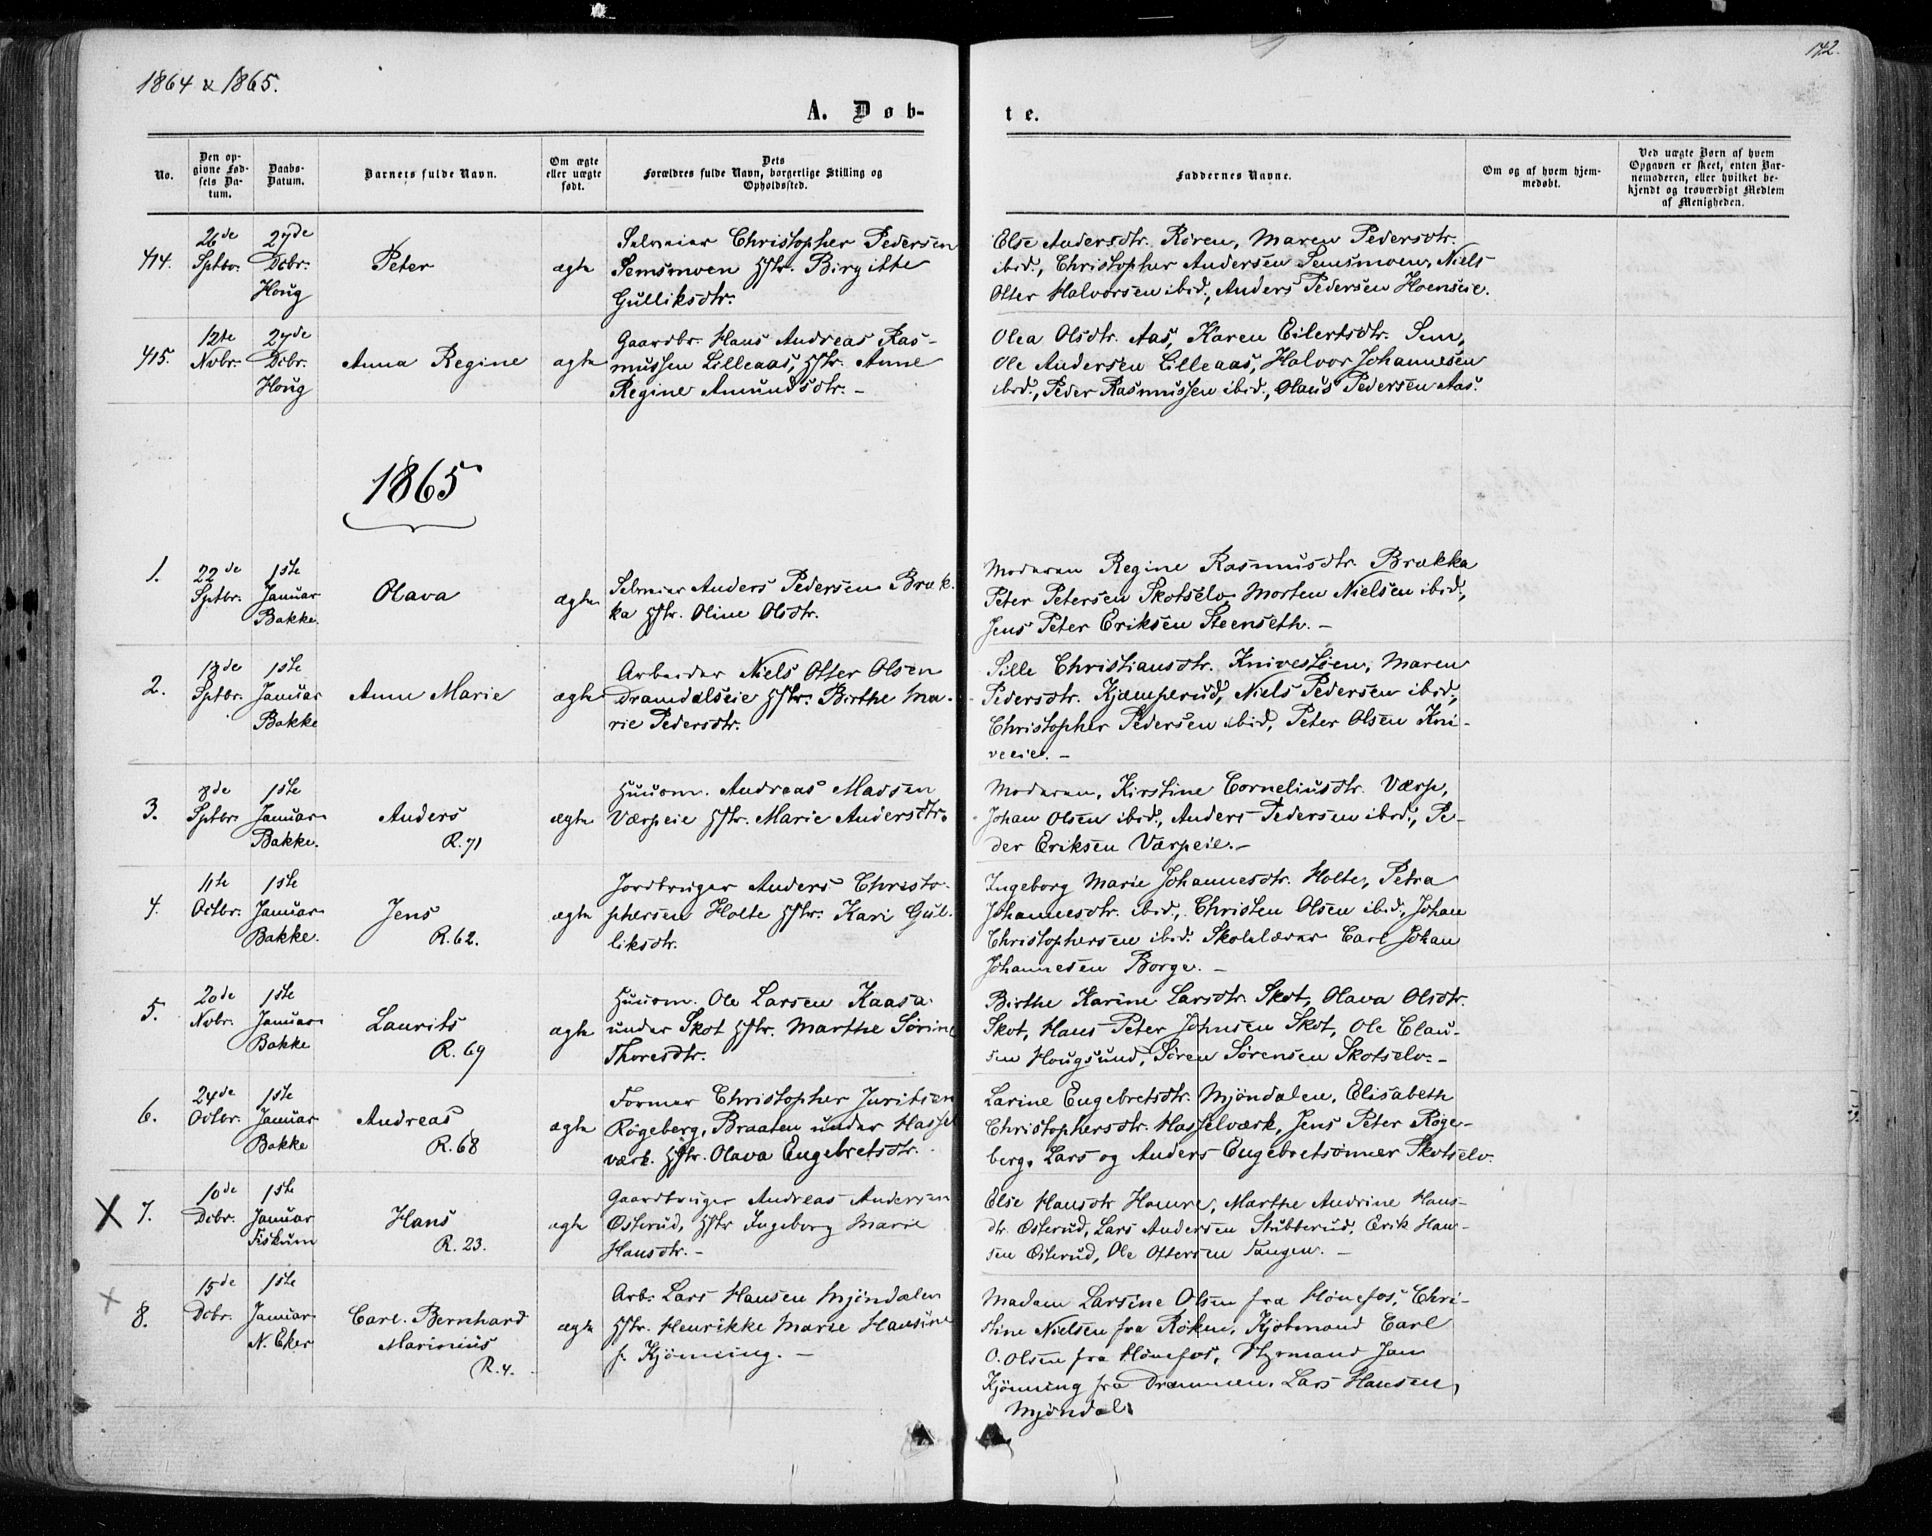 1864 & 1865.
142.
A. Døb-
te.
No.
Den op-
givne Fød-
sels Da-
tum.
Daabs-
Datum.
Barnets fulde Navn.
Om ægte
eller uægte
født.
Dets
Forældres fulde Navn, borgerlige Stilling og
Opholdssted.
Faddernes Navne.
Om og af hvem hjem-
medøbt.
Ved uægte Børn af hvem
Opgaven er skeet, enten Bar-
nemoderen, eller hvilket be-
kjendt og troværdigt Medlem
af Menigheden.
414.
26de
Sptbr.
27de
Dcbr.
Houg
Peter
ægte
Selveier Christopher Pedersen
Semsmoen Hstr. Birgitte
Gulliksdtr.
Else Andersdtr. Røren, Maren Pedersdtr.
ibid., Christopher Andersen Semsmoen, Niels
Otter Halvorsen ibid., Anders Pedersen Hoenseie.
415.
12te
Nvbr.
27de
Dcbr.
Houg
Anna Regine
ægte
Gaardbr. Hans Andreas Ras-
mussen Lilleaas, Hstr. Anne
Regine Amundsdtr. –
Olea Olsdtr. Aas, Karen Eilertsdtr. Sem,
Ole Andersen Lilleaas, Halvor Johannesen
ibid., Peder Rasmussen ibid., Olaus Pedersen Aas.
1865
1.
22de
Sptbr.
1ste
Januar
Bakke.
Olava
ægte
Selveier Anders Pedersen Bræk-
ka Hstr. Oline Olsdtr.
Moderen Regine Rasmusdtr. Brækka
Peter Petersen Skotselv Morten Nielsen ibid.,
Jens Peter Eriksen Steenseth. –
2.
Sptbr.
1ste
Januar
Bakke
Anne Marie
ægte
Arbeider Niels Otter Olsen
Dramdalseie Hstr. Birthe Ma-
rie Pedersdtr.
Sille Christiansdtr. Knivestøen, Maren
Pedersdtr. Kjæmperud, Niels Pedersen ibid.,
Christopher Pedersen ibid, Peter Olsen Kni-
veeie. –
3.
8de
Sptbr.
1ste
Januar
Bakke.
Anders
R. 71
ægte
Huusm. Andreas Madsen
Værpeie Hstr. Marie Andersdtr.
Moderen, Kirstine Corneliusdtr. Værp,
Johan Olsen ibid., Anders Pedersen ibid., Pe-
der Eriksen Værpeie. –
4.
11te
Octbr.
1ste
Januar
Bakke.
Jens
R. 62.
ægte
Jordbruger Anders Christo-
phersen Holte Hstr. Kari Gul-
liksdtr.
Ingeborg Marie Johannesdtr. Holte, Petra
Johannesdtr. ibid., Christen Olsen ibid, Johan
Christophersen ibid. Skolelærer Carl Johan
Johannesen Borge. –
5.
20de
Nvbr.
1ste
Januar
Bakke
Laurits
R. 69
ægte
Huusm. Ole Larsen Kaasa
under Skot Hstr. Marthe Sørine
Thoresdtr.
Birthe Karine Larsdtr. Skot, Olava Olsdtr.
Skot, Hans Peter Johnsen Skot, Ole Clau-
sen Hougsund, Søren Sørensen Skotselv. –
6.
24de
Octbr.
1ste
Januar
Bakke
Andreas
R. 68
ægte
Former Christopher Juritsen
Røgeberg, Braaten under Hassel
værk. Hstr. Olava Engebretsdtr.
Larine Engebretsdtr. Mjøndalen, Elisabeth
Christophersdtr. Hasselværk, Jens Peter Røge-
berg, Lars og Anders Engebretsønner Skotselv.
X 7.
10de
Dcbr.
1ste
Januar
Fiskum
Hans
R. 23.
ægte
Gaardbruger Andreas Andersen
Østerud, Hstr Ingeborg Marie
Hansdtr. –
Else Hansdtr Hamre, Marthe Andrine Hans-
dtr. Østerud, Lars Andersen Stubberud, Erik Han-
sen Østerud, Ole Ottersen Tangen. –
X 8.
15de
Dcbr.
1ste
Januar
N. Eker
Carl Bernhard
Marinius
R. 4.
ægte
Arb. Lars Hansen Mjøndalen
Hstr. Henrikke Marie Hansine
f. Kjønning. –
Madam Larsine Olsen fra Hønefos, Chri-
stine Nielsen fra Røken, Kjøbmand Carl
O. Olsen fra Hønefos, Styrmand Jan
Kjønning fra Drammen, Lars Hansen,
Mjøndal.